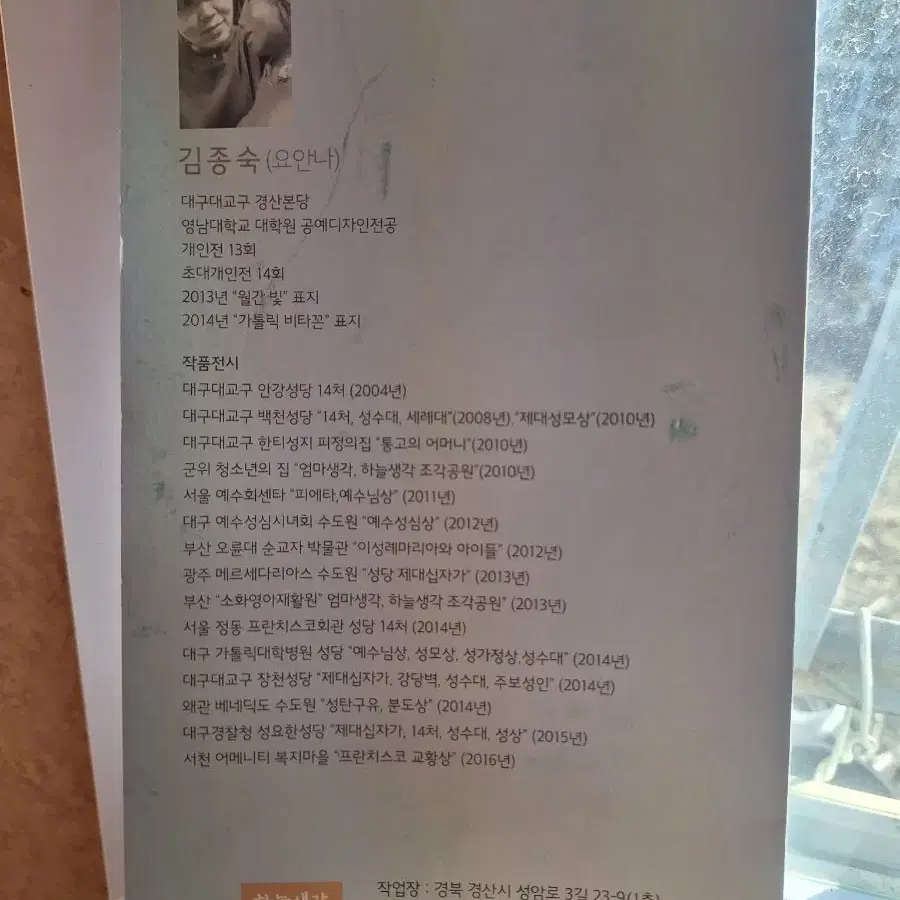 김종숙(요안나)
대구대교구 경산본당
영남대학교 대학원 공예디자인전공
개인전 13회
초대개인전 14회
2013년 "월간 빛" 표지
2014년 "가톨릭 비타꼰" 표지
작품전시
대구대교구 안강성당 14처 (2004년)
대구대교구 백천성당 "14처, 성수대, 세례대"(2008년),"제대성모상"(2010년)
대구대교구 한티성지 피정의집 "통고의 어머니"(2010년)
군위 청소년의 집 "엄마생각, 하늘생각 조각공원"(2010년)
서울 예수회센타 "피에타,예수님상" (2011년)
대구 예수성심시녀회 수도원 "예수성심상" (2012년)
부산 오륜대 순교자 박물관 "이성례마리아와 아이들" (2012년)
광주 메르세다리아스 수도원 "성당 제대십자가" (2013년)
부산 "소화영아재활원" 엄마생각, 하늘생각 조각공원" (2013년)
서울 정동 프란치스코회관 성당 14처 (2014년)
대구 가톨릭대학병원 성당 "예수님상, 성모상, 성가정상,성수대" (2014년)
대구대교구 장천성당 "제대십자가, 강당벽, 성수대, 주보성인" (2014년)
왜관 베네딕도 수도원 "성탄구유, 분도상" (2014년)
대구경찰청 성요한성당 "제대십자가, 14처, 성수대, 성상" (2015년)
서천 어메니티 복지마을 "프란치스코 교황상" (2016년)
하늘생각
작업장 : 경북 경산시 성암로 3길 23-9(1층)